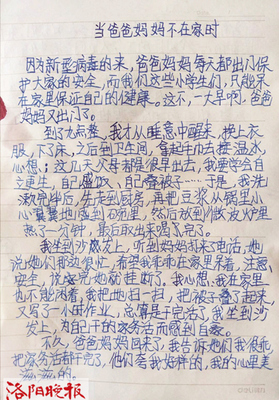 当爸爸妈妈不在家时
因为新型病毒的来,爸爸妈妈每天都出门保
护大家的安全,而我们这些小学生们,只能呆
在家里保证自己的健康。这不,一大早啊,爸爸
妈妈又出门了。
到了九点整,我才从睡意中醒来,晚上衣
服,下了床,之后到卫生间,拿起牛仰去接温水,
心想:这几天父母都是很早出去,我要学会自
立更生,自己盛饭、自己叠被子……于是,我洗
漱完毕后,先走到厨房,再把豆浆从锅里小
心翼翼地盛到石碗里,然后放到微波炉里
热了一分钟,最后取出来喝了完。
我坐到沙发上,听到妈妈打来了电话,她
说她们那边很忙,希望我乖乖在家里呆着,注意
安全,说完她就挂断了。我心想,我在家里
也不能闲着,我把地扫一扫,把被子叠了起来,
又写了一小时作业,总算是干完活了,我坐到沙
发上,为自己干的家务活而感到自豪。
不久,爸爸妈妈回来了,我告诉她们我很乖,
把家务活都干完了,他们夸我好样的,我的心里美
滋滋的。
洛阳晚报